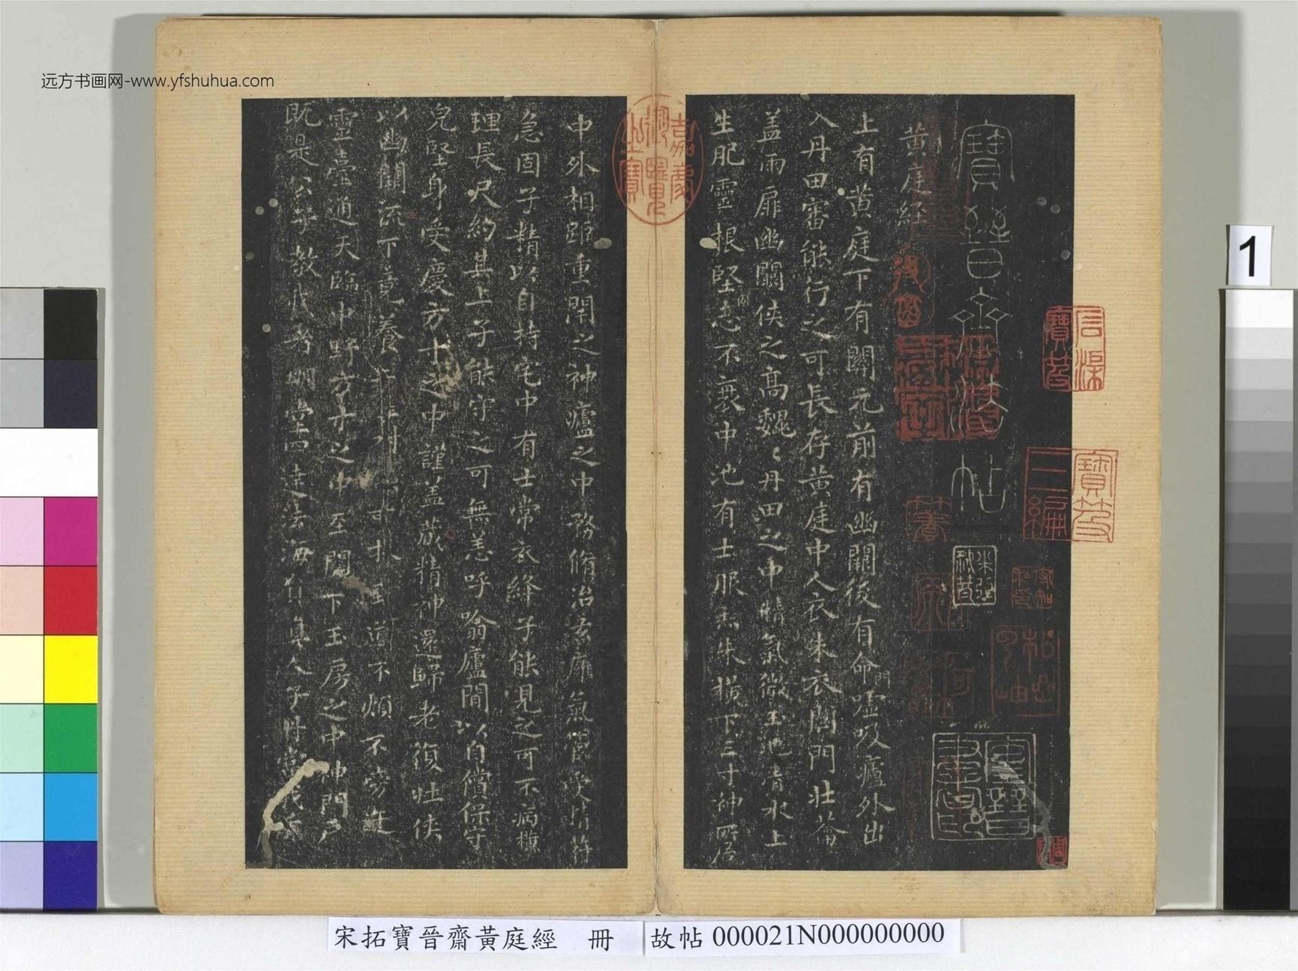 远方书画网-www.yfshuhua.com
1
寶晉齋法帖
黃庭經
上有黃庭下有關元前有幽闕後有命門噓吸廬外出
入丹田審能行之可長存黃庭中人衣朱衣關門壯蘥
蓋兩扉幽闕俠之高巍巍丹田之中精氣微玉池清水上
生肥靈根堅志不衰中池有士服赤朱橫下三寸神所居
中外相距重閉之神廬之中務脩治玄廱氣管受精符
急固子精以自持宅中有士常衣絳子能見之可不病橫
理長尺約其上子能守之可無恙呼噏廬間以自償保守
皃堅身受慶方寸之中謹蓋藏精神還歸老復壯俠
以幽闕流下竟養 不煩不旁迕
靈臺通天臨中野方寸之中至關下玉房之中神門戶
既是公子教我者明堂 達 海 真人子丹當
嘉慶御覽之寶
寶笈三編
宋拓寶晉齋黃庭經 冊
故帖 000021N000000000